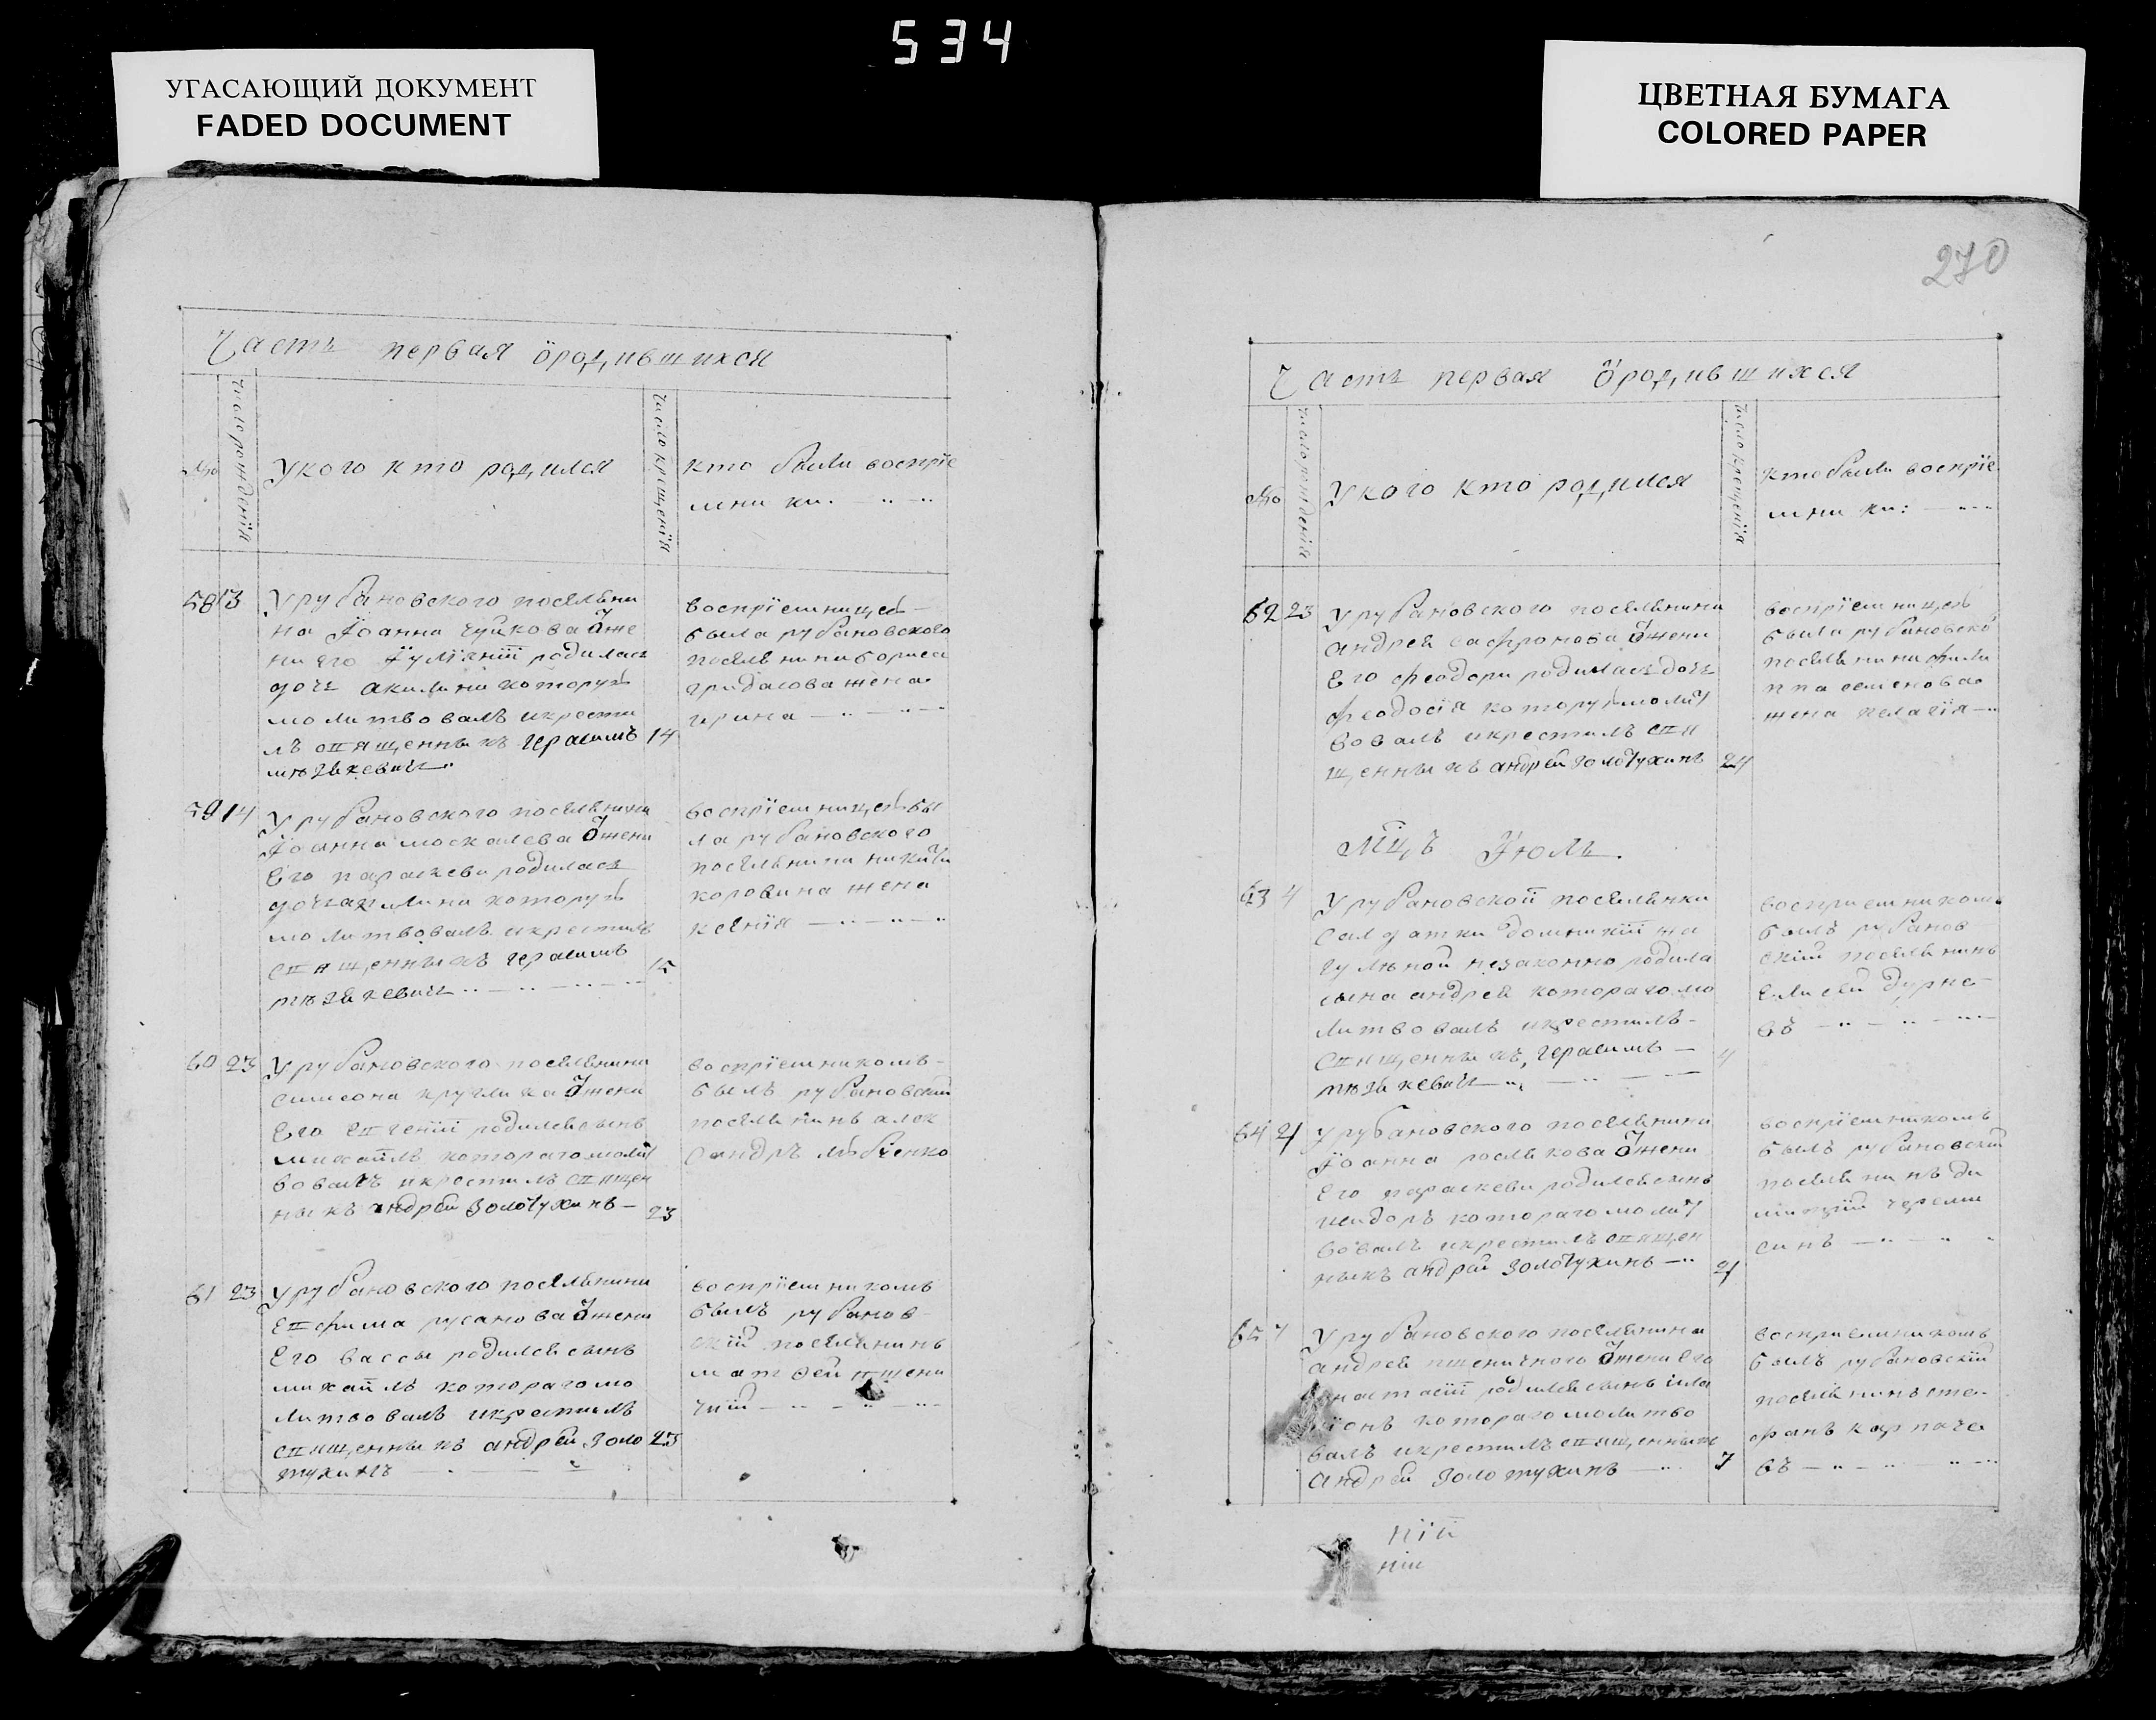 534
УГАСАЮЩИЙ ДОКУМЕНТ
FADED DOCUMENT
ЦВЕТНАЯ БУМАГА
COLORED PAPER
Часть первая ѻродившихся
№
число рожденія
У кого кто родился
число крещенія
кто были воспріе
мни ки.
58 13
У рубановского поселяни
на Іоанна чуйкова ѿ же
ни его Іуліяніи родилась
дочь акилина которую
молитвовалъ и крести
лъ священникъ герасимъ 14
воспріемницею
была рубановского
поселянина бориса
гридасова жена
ирина
59 14
У рубановского поселянина
Іоанна москалева ѿ жени
Его параскеви родилась
дочь акилина которую
молитвовалъ и крестилъ
священникъ герасимъ 15
воспріемницею бы
ла рубановского
поселянина никити
коровина жена
ксенія
60 23
У рубановского поселянина
симеона кругlика ѿ жени
Его Евгеніи родился сынъ
михаилъ которагомолит
вовалъ и крестилъ священ
никъ андрей Золотухинъ 23
воспріемникомъ
былъ рубановскій
поселянинъ алек
сандръ
61 23
У рубановского поселянина
Евфима русанова ѿ жени
Его вассы родился сынъ
михаилъ котораго мо
литвовалъ и крестилъ
священникъ андрей Золо 23
тухинъ
воспріемникомъ
былъ рубанов
скій поселянинъ
матфей пшени
чній
270
Часть первая ѻродившихся
№
число рожденія
У кого кто родился
число крещенія
кто были воспріе
мни ки:
62 23
У рубановского поселянина
андрея сафронова ѿ жени
Его феодори родилась дочь
феодосія которую молит
вовалъ и крестилъ свя
щенникъ андрей Золотухинъ 24
воспріемницею
была рубановско
поселянина фили
ппа семенова
жена пелагія
мцъ Іюль.
63 4
У рубановской поселянки
салдатки домникіи
незаконно родила
сына андрея котораго мо
литвовалъ и крестилъ
священникъ герасимъ 4
воспріемникомъ
былъ рубанов
скій поселянинъ
Елисей дурне
въ
64
У рубановского поселянина
Іоанна рослякова ѿ жени
Его параскеви родился сынъ
исидоръ котораго молит
вовалъ и крестилъ священ
никъ андрей Золотухинъ
воспріемникомъ
былъ рубановскій
поселянинъ ди
митрій череми
синъ
65 7
У рубановского поселянина
андрея пшеничного ѿ жени его
анастасіи родился сынъ ила
ріонъ котораго молитво
валъ и крестилъ священникъ
андрей Золотухинъ 7
воспріемникомъ
былъ рубановскій
поселянинъ сте
фанъ карпаче
въ